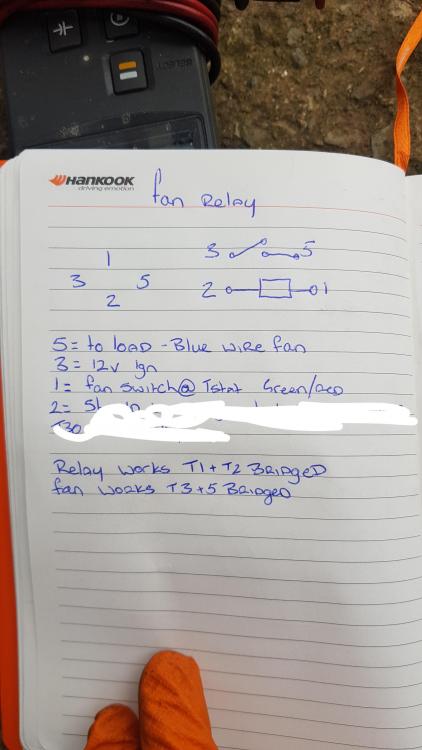 SELECT
HANKOOK
driving emotion
fan Relay
1
3 5
2
3 5
2 1
5 = to LOAD - Blue wire fan
3 = 12v Ign
1 = fan switch @ Tstat Green/RED
2 =
Relay works T1 + T2 BRIDGED
fan works T3 + 5 BRIDGED